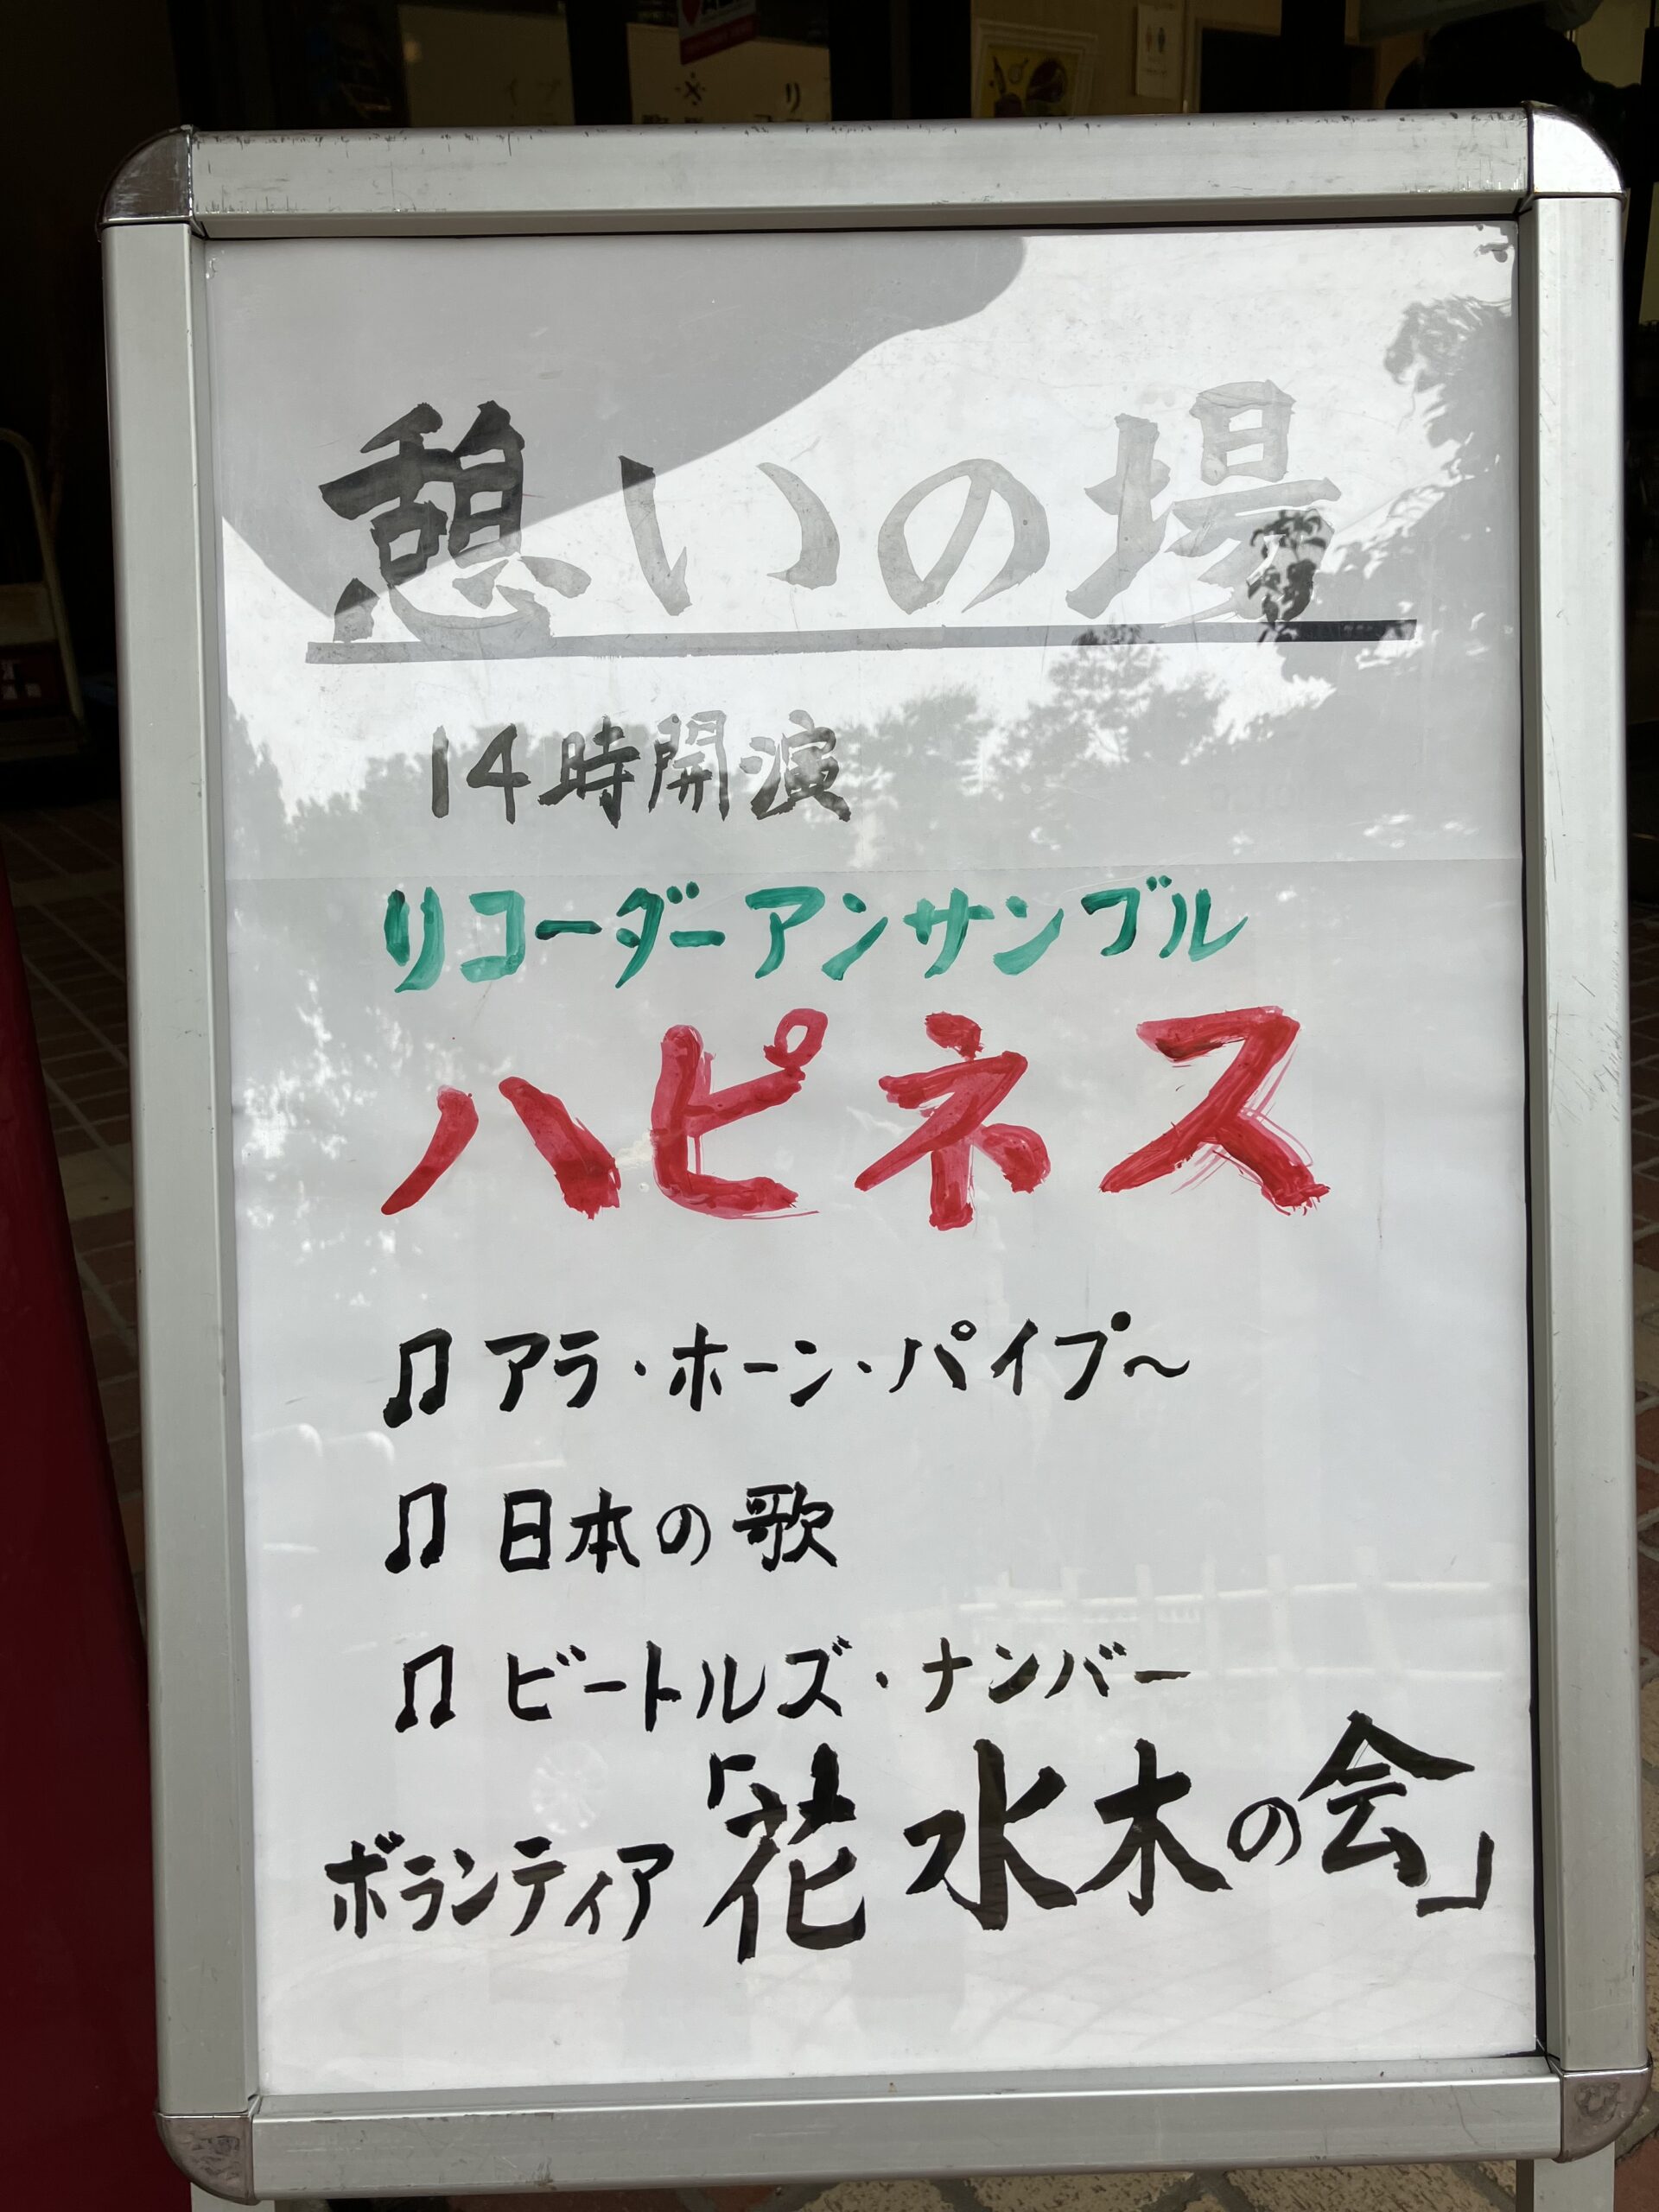 憩いの場
14時開演
リコーダーアンサンブル
ハピネス
♫ アラ・ホーン・パイプ〜
♫ 日本の歌
♫ ビートルズ・ナンバー
ボランティア「花水木の会」